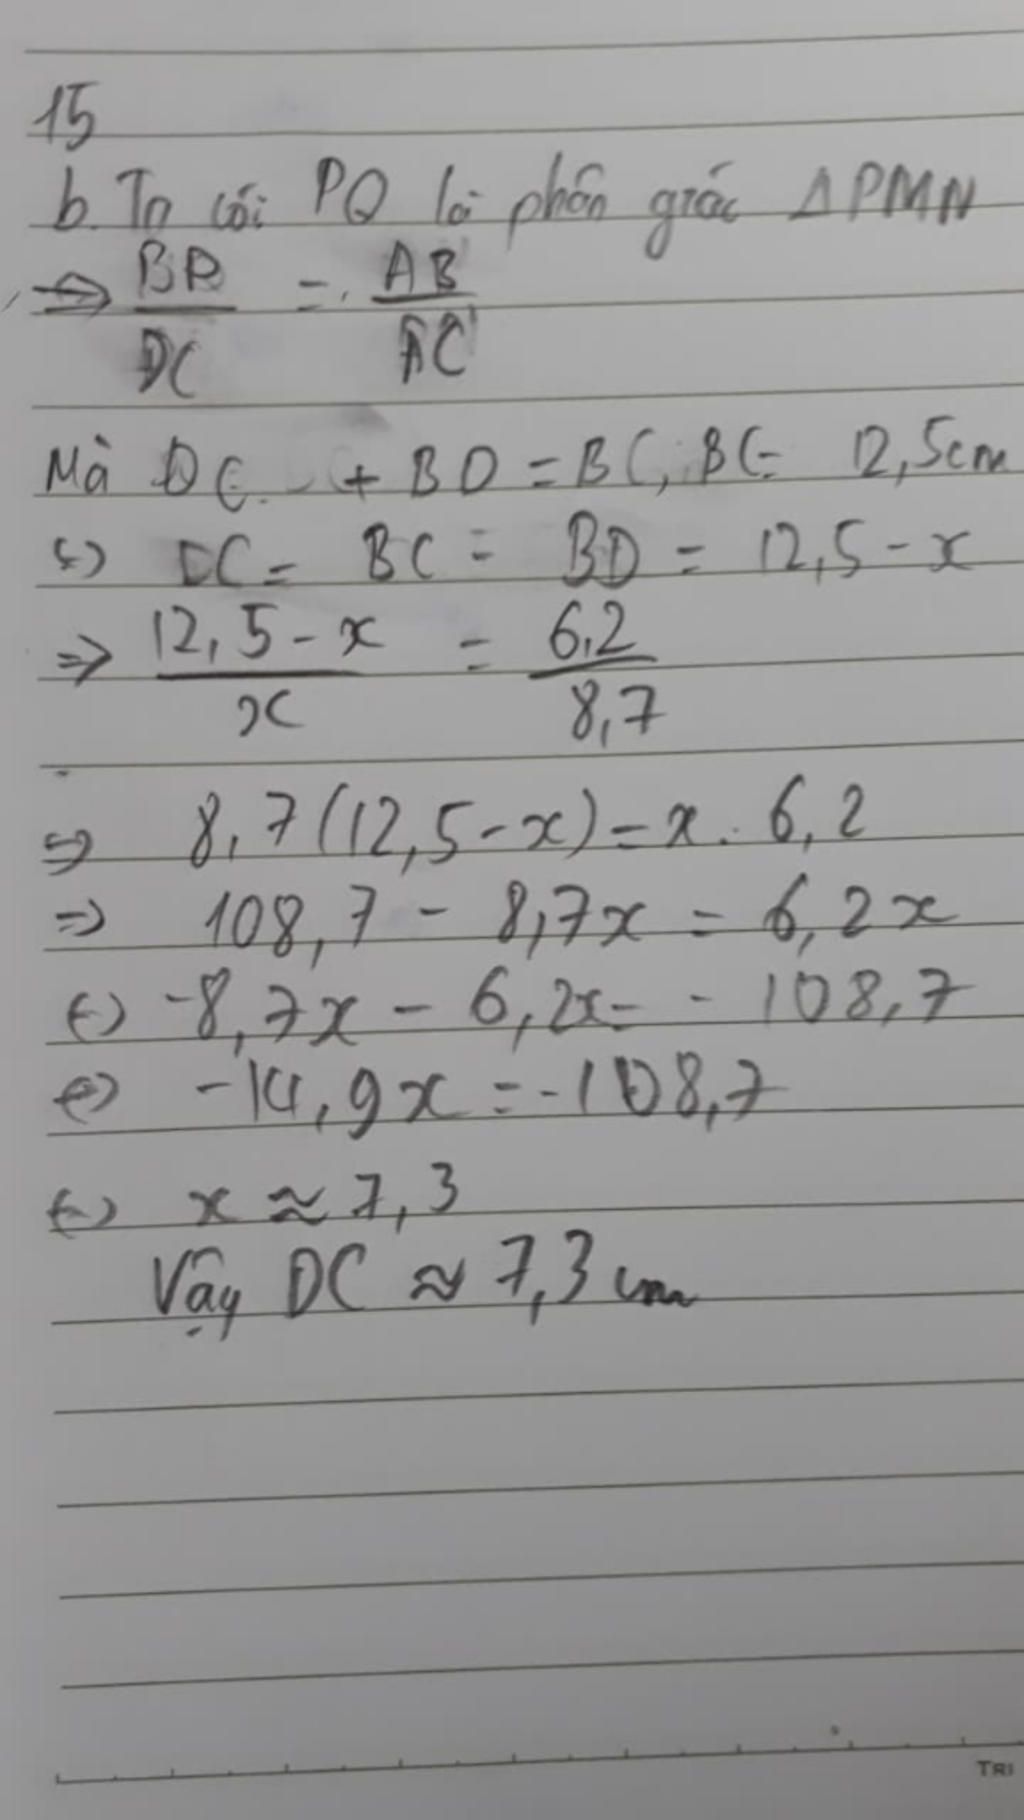 15
b. Ta có: PQ là phân giác ΔPMN
=> BD/DC = AB/AC
Mà DC + BD = BC, BC = 12,5cm
<=> DC = BC = BD = 12,5 - x
=> 12,5 - x/x = 6,2/8,7
=> 8,7(12,5 - x) = x . 6,2
=> 108,7 - 8,7x = 6,2x
<=> -8,7x - 6,2x = - 108,7
<=> -14,9x = -108,7
<=> x ≈ 7,3
Vậy DC ≈ 7,3 cm
TRI